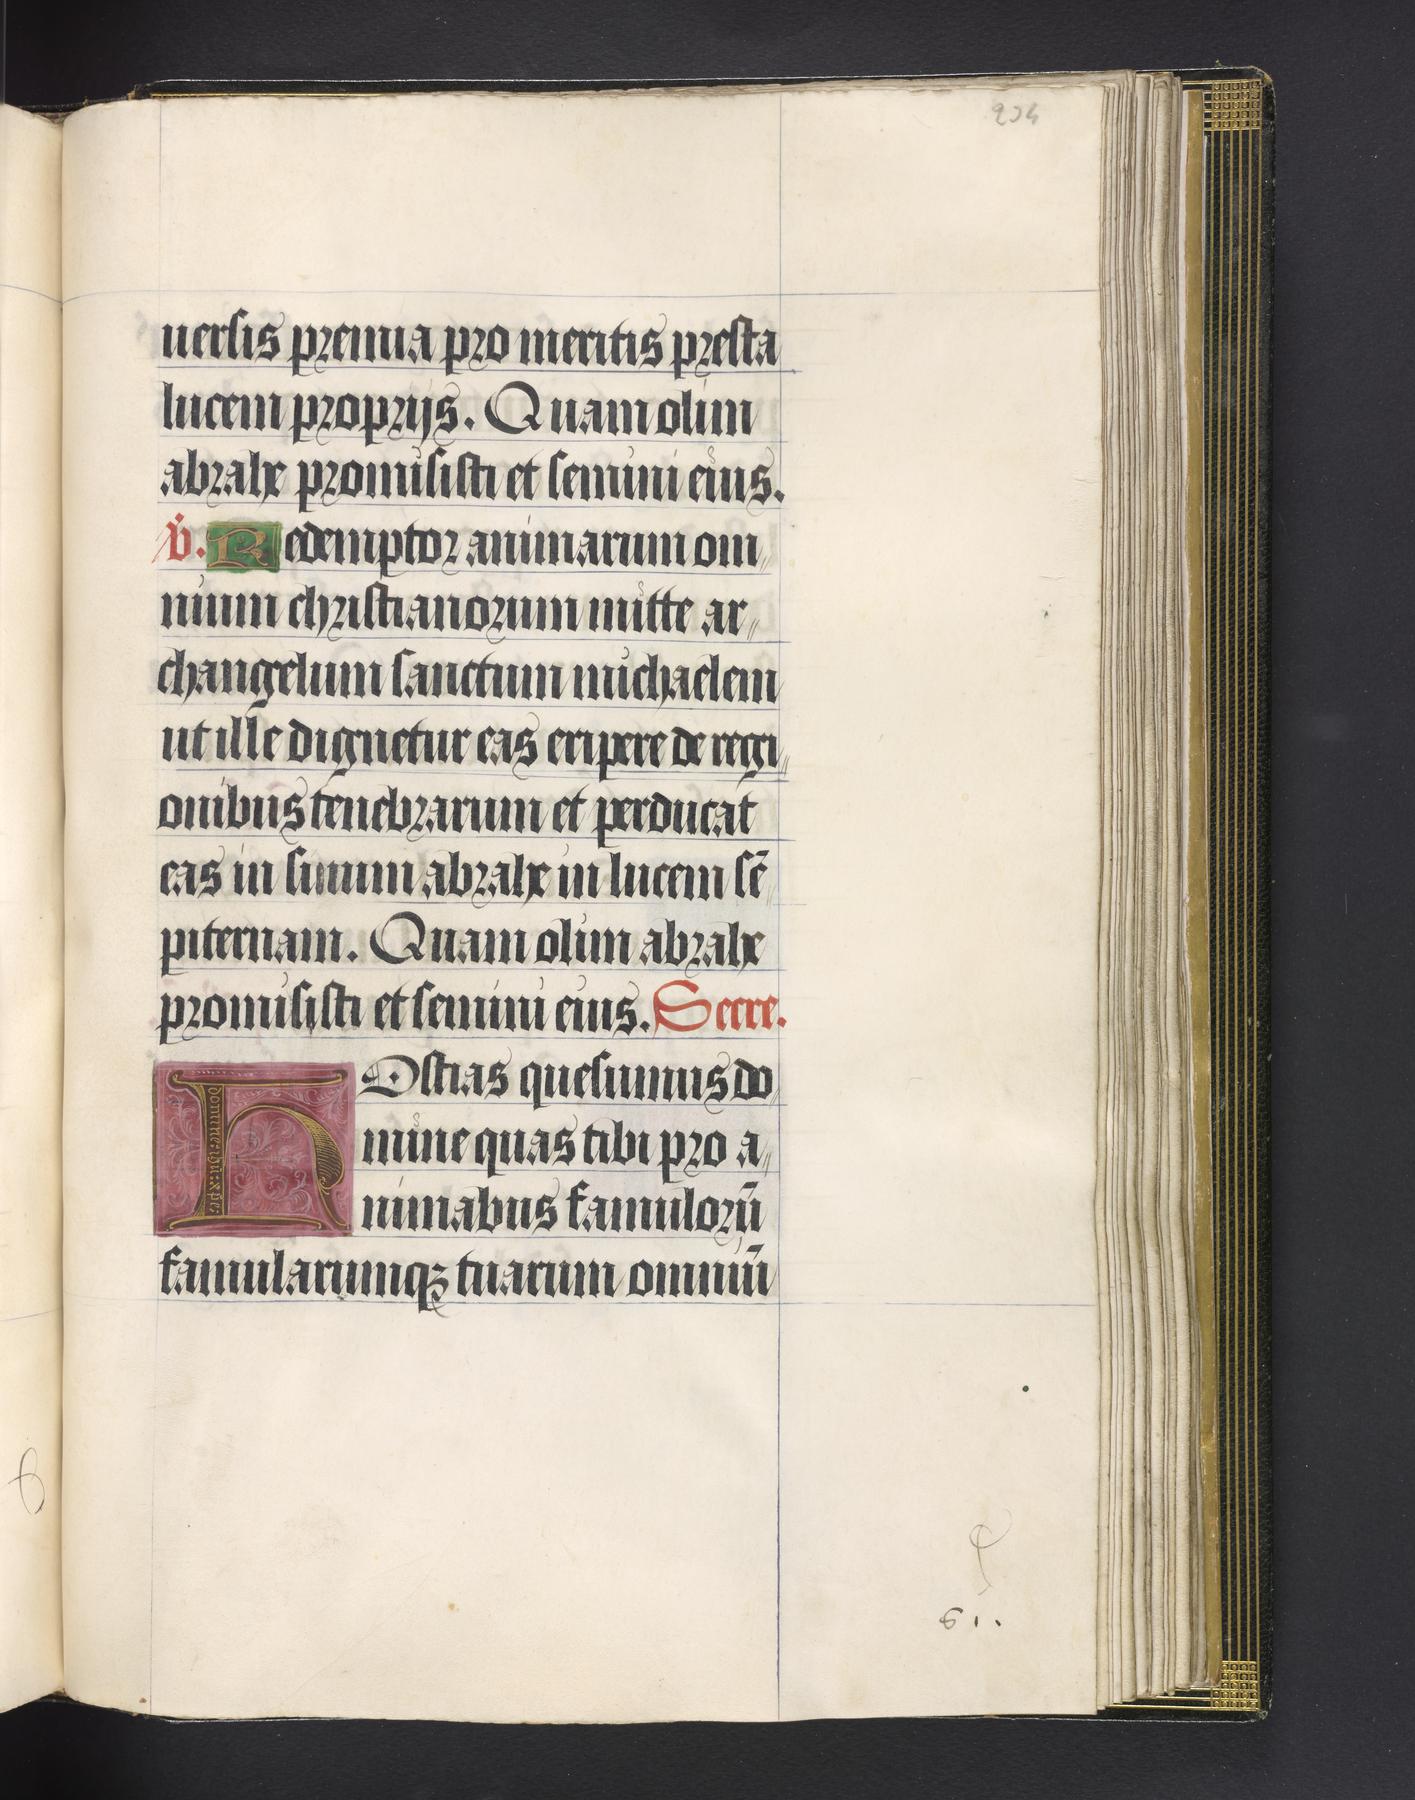 204
uersis premia pro meritis presta
lucem proprijs. Quam olim
abrahe promisisti et semini eius.
V. Redemptor animarum om
nium christianorum mitte ar
changelum sanctum michaelem
ut ille dignetur eas eripere de regi
onibus tenebrarum et perducat
eas in sinum abrahe in lucem sē
piternam. Quam olim abrahe
promisisti et semini eius. Secre.
HOstias quesumus do
mine quas tibi pro a
nimabus famulorū
famularumqꝫ tuarum omniū
61.